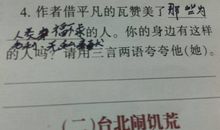 4. 作者借平凡的瓦赞美了那些为
人类幸福的人。你的身边有这样
无私奉献
的人吗？请用三言两语夸夸他(她)。
(二)台北闹饥荒